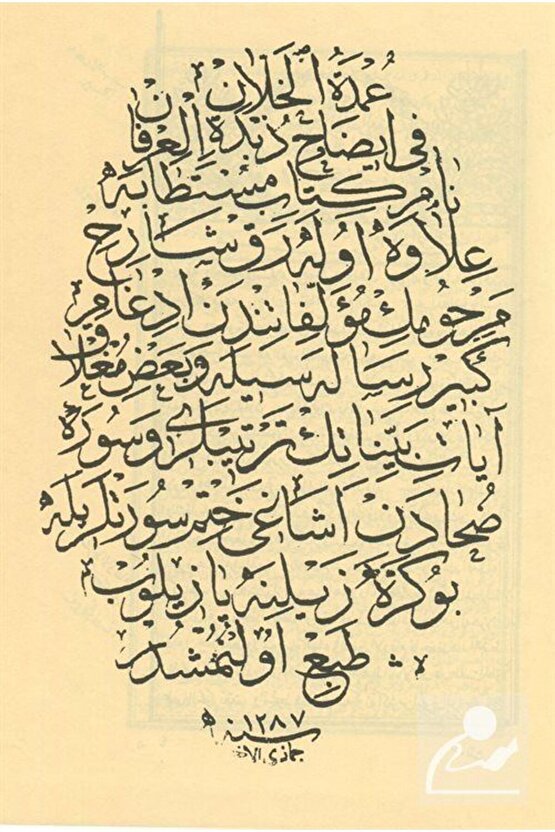 عُمْدَةُ الْخُلَّانِ
فِي اِيضَاحِ زُبْدَةِ الْعِرْفَانِ
نَامْ كِتَابِ مُسْتَطَابَه
عِلَاوَهْ اُولَهْ رَقْ شَارِحِ
مَرْحُومِكْ مُؤَلَّفَاتِنْدَنْ اِدْغَامِ
كَبِيرْ رِسَالَه سِيلَه وَبَعْضِ مُغْلَقْ
آيَاتِ بَيِّنَاتِكْ تَرْتِيبْلَرِي وَسُورَهٔ
ضُحَادَنْ اَشَاغِي خَتِمْ سُورَتْلَرِيلَه
بُو كَرَّهْ ذَيْلِنَه يَازِيلُوبْ
طَبْعْ اُولِنْمِشْدِرْ
سنه ١٢٨٧
جماذى الاخر